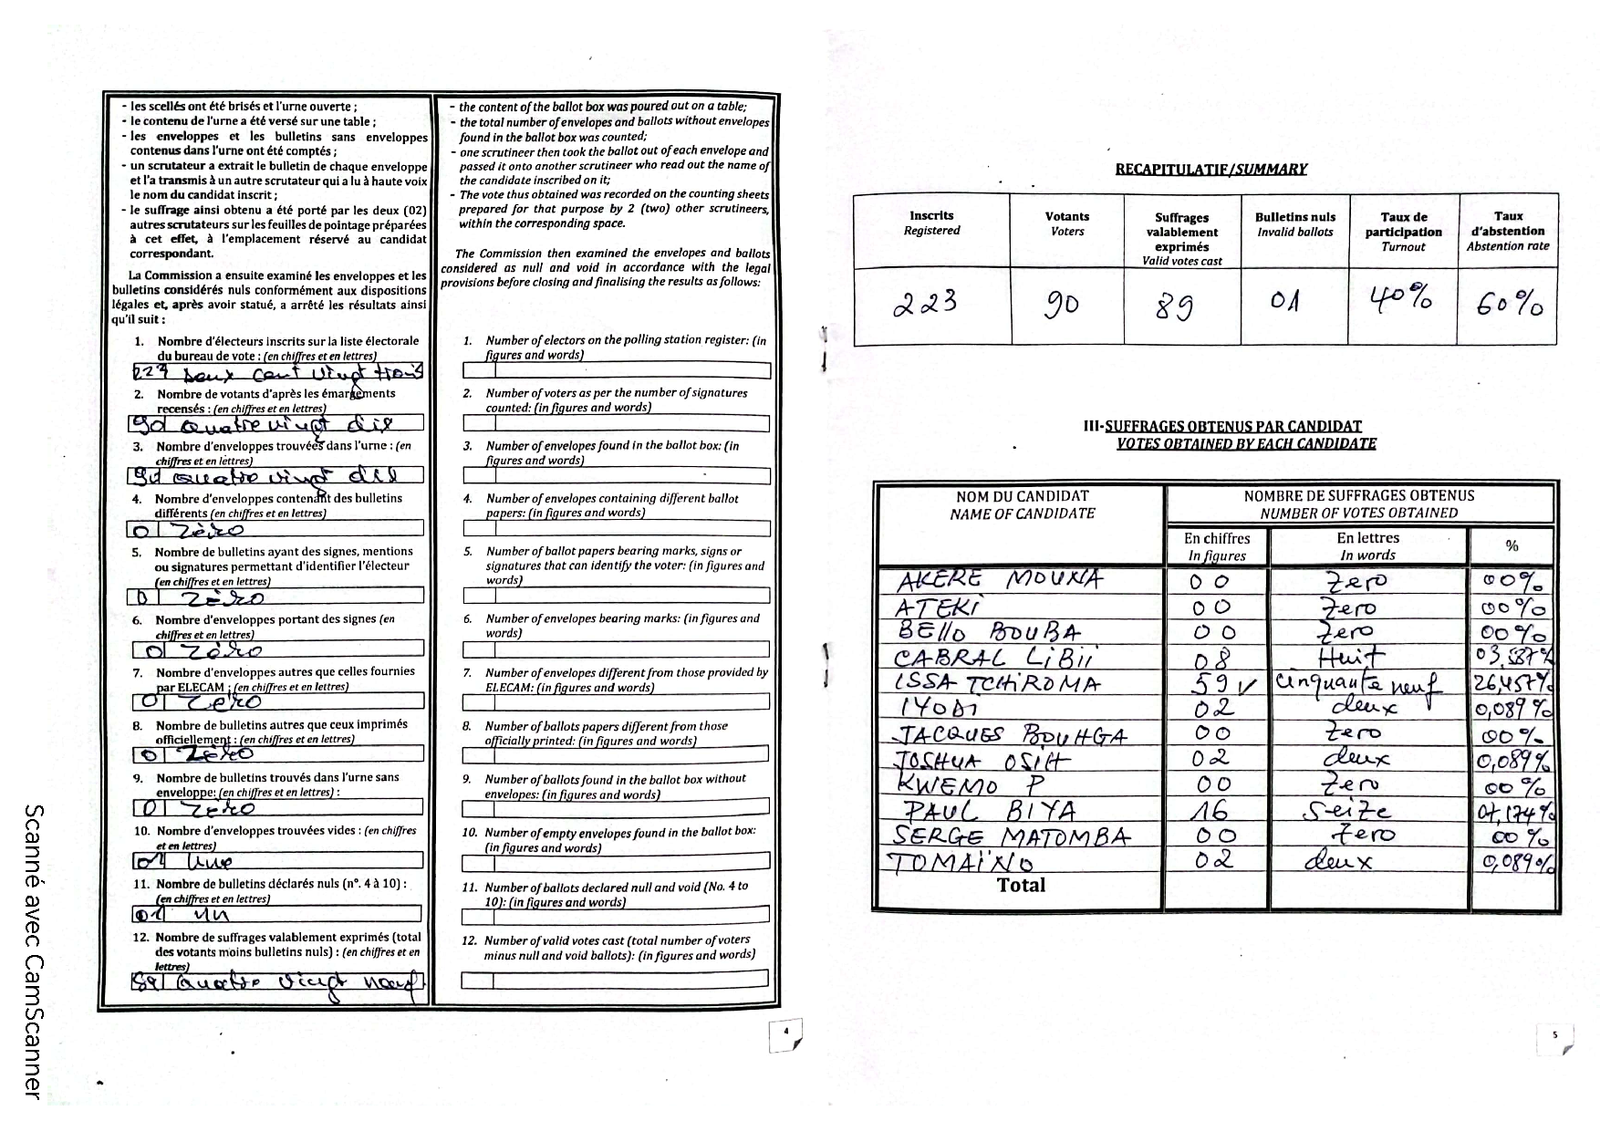 - les scellés ont été brisés et l'urne ouverte ;
- le contenu de l'urne a été versé sur une table ;
- les enveloppes et les bulletins sans enveloppes
contenus dans l'urne ont été comptés ;
- un scrutateur a extrait le bulletin de chaque enveloppe
et l'a transmis à un autre scrutateur qui a lu à haute voix
le nom du candidat inscrit ;
- le suffrage ainsi obtenu a été porté par les deux (02)
autres scrutateurs sur les feuilles de pointage préparées
à cet effet, à l'emplacement réservé au candidat
correspondant.
La Commission a ensuite examiné les enveloppes et les
bulletins considérés nuls conformément aux dispositions
légales et, après avoir statué, a arrêté les résultats ainsi
qu'il suit :
1. Nombre d'électeurs inscrits sur la liste électorale
du bureau de vote : (en chiffres et en lettres)
223 deux cent vingt trois
2. Nombre de votants d'après les émargements
recensés : (en chiffres et en lettres)
90 quatre vingt dix
3. Nombre d'enveloppes trouvées dans l'urne : (en
chiffres et en lettres)
90 quatre vingt dix
4. Nombre d'enveloppes contenant des bulletins
différents (en chiffres et en lettres)
0 Zèro
5. Nombre de bulletins ayant des signes, mentions
ou signatures permettant d'identifier l'électeur
(en chiffres et en lettres)
0 Zèro
6. Nombre d'enveloppes portant des signes (en
chiffres et en lettres)
0 Zèro
7. Nombre d'enveloppes autres que celles fournies
par ELECAM : (en chiffres et en lettres)
0 Zero
8. Nombre de bulletins autres que ceux imprimés
officiellement : (en chiffres et en lettres)
0 Zèro
9. Nombre de bulletins trouvés dans l'urne sans
enveloppe: (en chiffres et en lettres) :
0 Zèro
10. Nombre d'enveloppes trouvées vides : (en chiffres
et en lettres)
01 Une
11. Nombre de bulletins déclarés nuls (n°. 4 à 10) :
(en chiffres et en lettres)
01 un
12. Nombre de suffrages valablement exprimés (total
des votants moins bulletins nuls) : (en chiffres et en
lettres)
89 quatre vingt neuf
- the content of the ballot box was poured out on a table;
- the total number of envelopes and ballots without envelopes
found in the ballot box was counted;
- one scrutineer then took the ballot out of each envelope and
passed it onto another scrutineer who read out the name of
the candidate inscribed on it;
- The vote thus obtained was recorded on the counting sheets
prepared for that purpose by 2 (two) other scrutineers,
within the corresponding space.
The Commission then examined the envelopes and ballots
considered as null and void in accordance with the legal
provisions before closing and finalising the results as follows:
1. Number of electors on the polling station register: (in
figures and words)
2. Number of voters as per the number of signatures
counted: (in figures and words)
3. Number of envelopes found in the ballot box: (in
figures and words)
4. Number of envelopes containing different ballot
papers: (in figures and words)
5. Number of ballot papers bearing marks, signs or
signatures that can identify the voter: (in figures and
words)
6. Number of envelopes bearing marks: (in figures and
words)
7. Number of envelopes different from those provided by
ELECAM: (in figures and words)
8. Number of ballots papers different from those
officially printed: (in figures and words)
9. Number of ballots found in the ballot box without
envelopes: (in figures and words)
10. Number of empty envelopes found in the ballot box:
(in figures and words)
11. Number of ballots declared null and void (No. 4 to
10): (in figures and words)
12. Number of valid votes cast (total number of voters
minus null and void ballots): (in figures and words)
4
Scanné avec CamScanner
RECAPITULATIF/SUMMARY
Inscrits Votants Suffrages valablement exprimés Bulletins nuls Taux de participation Taux d'abstention
Registered Voters Valid votes cast Invalid ballots Turnout Abstention rate
223 90 89 01 40% 60%
III-SUFFRAGES OBTENUS PAR CANDIDAT
VOTES OBTAINED BY EACH CANDIDATE
NOM DU CANDIDAT NOMBRE DE SUFFRAGES OBTENUS
NAME OF CANDIDATE NUMBER OF VOTES OBTAINED
En chiffres En lettres %
In figures In words
AKERE MOUNA 00 Zero 00%
ATEKI 00 Zero 00%
BEllO BOUBA 00 Zero 00%
CABRAL LiBii 08 Huit 03,587%
ISSA TCHiROMA 59 cinquante neuf 26,457%
IYODI 02 deux 0,089%
JACQUES BOUHGA 00 Zero 00%
JOSHUA OSiH 02 deux 0,089%
KWEMO P 00 Zero 00%
PAUL BIYA 16 Seize 07,174%
SERGE MATOMBA 00 Zero 00%
TOMAÏNO 02 deux 0,089%
Total
5